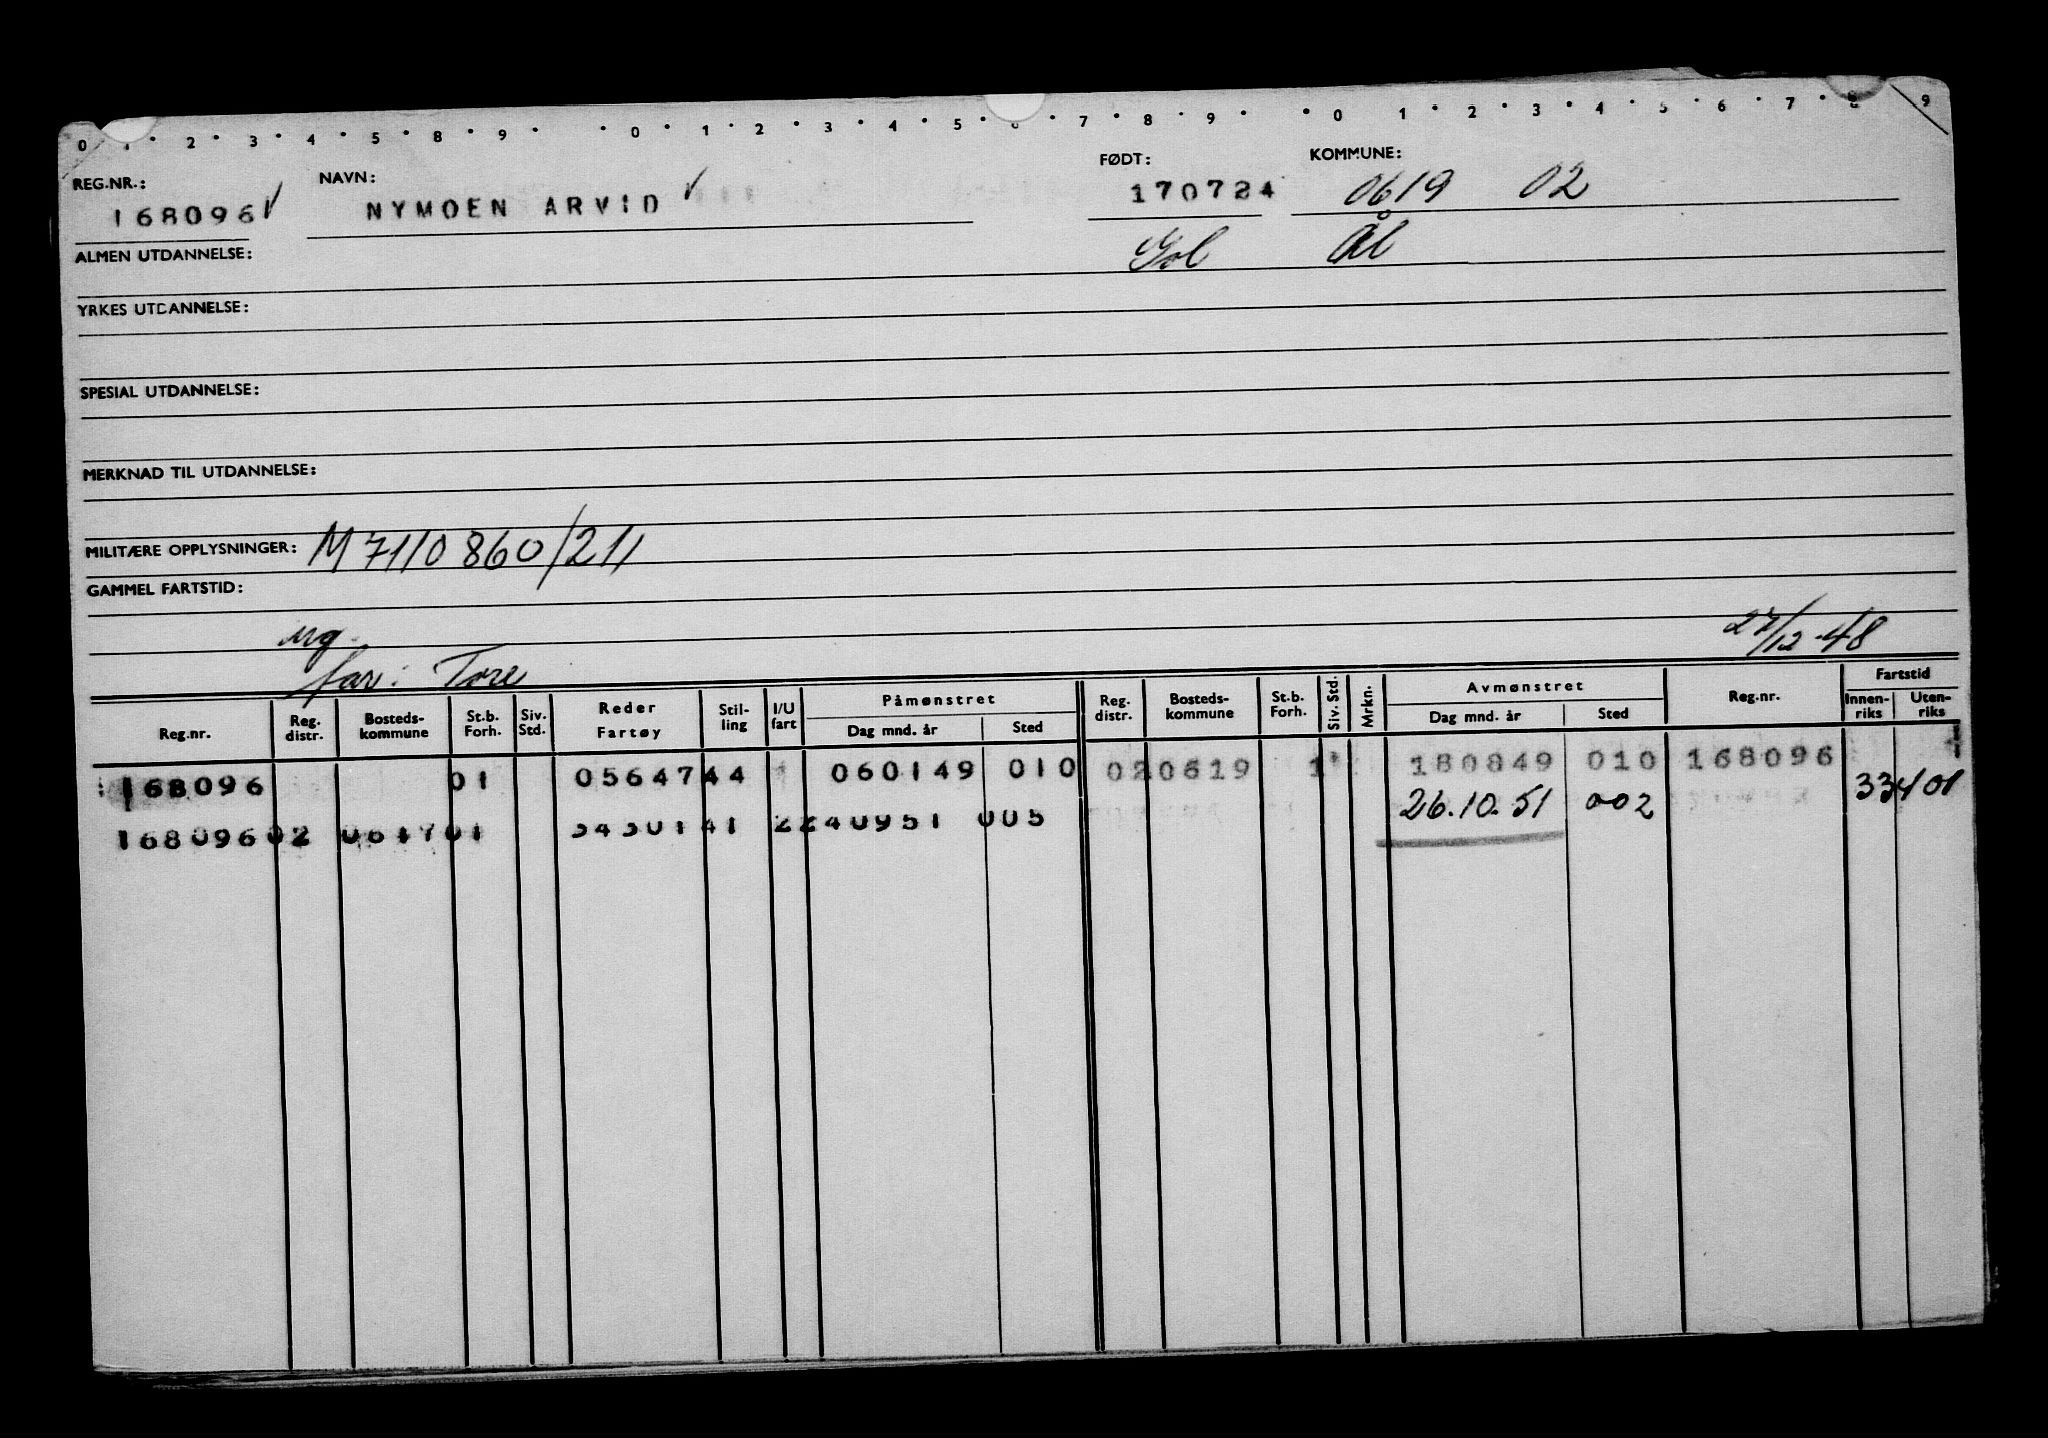 0 · 1 · 2 · 3 · 4 · 5 · 8 · 9 · · 0 · 1 · 2 · 3 · 4 · 5 · 6 · 7 · 8 · 9 · · 0 · 1 · 2 · 3 · 4 · 5 · 6 · 7 · 8 · 9
REG.NR.: NAVN: FØDT: KOMMUNE:
168096 NYMOEN ARVID 170724 0619 02
ALMEN UTDANNELSE: Gol Ål
YRKES UTDANNELSE:
SPESIAL UTDANNELSE:
MERKNAD TIL UTDANNELSE:
MILITÆRE OPPLYSNINGER: M 7110860/211
GAMMEL FARTSTID:
ug. 27/12-48
far: Tore
Reg.nr. Reg. distr. Bosteds-kommune St.b. Forh. Siv. Std. Reder Fartøy Stil-ling I/U fart Påmønstret Dag mnd. år Sted Reg. distr. Bosteds-kommune St.b. Forh. Siv. Std. Mrkn. Avmønstret Dag mnd. år Sted Reg.nr. Fartstid Innen-riks Uten-riks
168096 01 0564744 060149 010 020619 1 180849 010 168096
16809602 01 41 2240951 005 26.10.51 002 33401